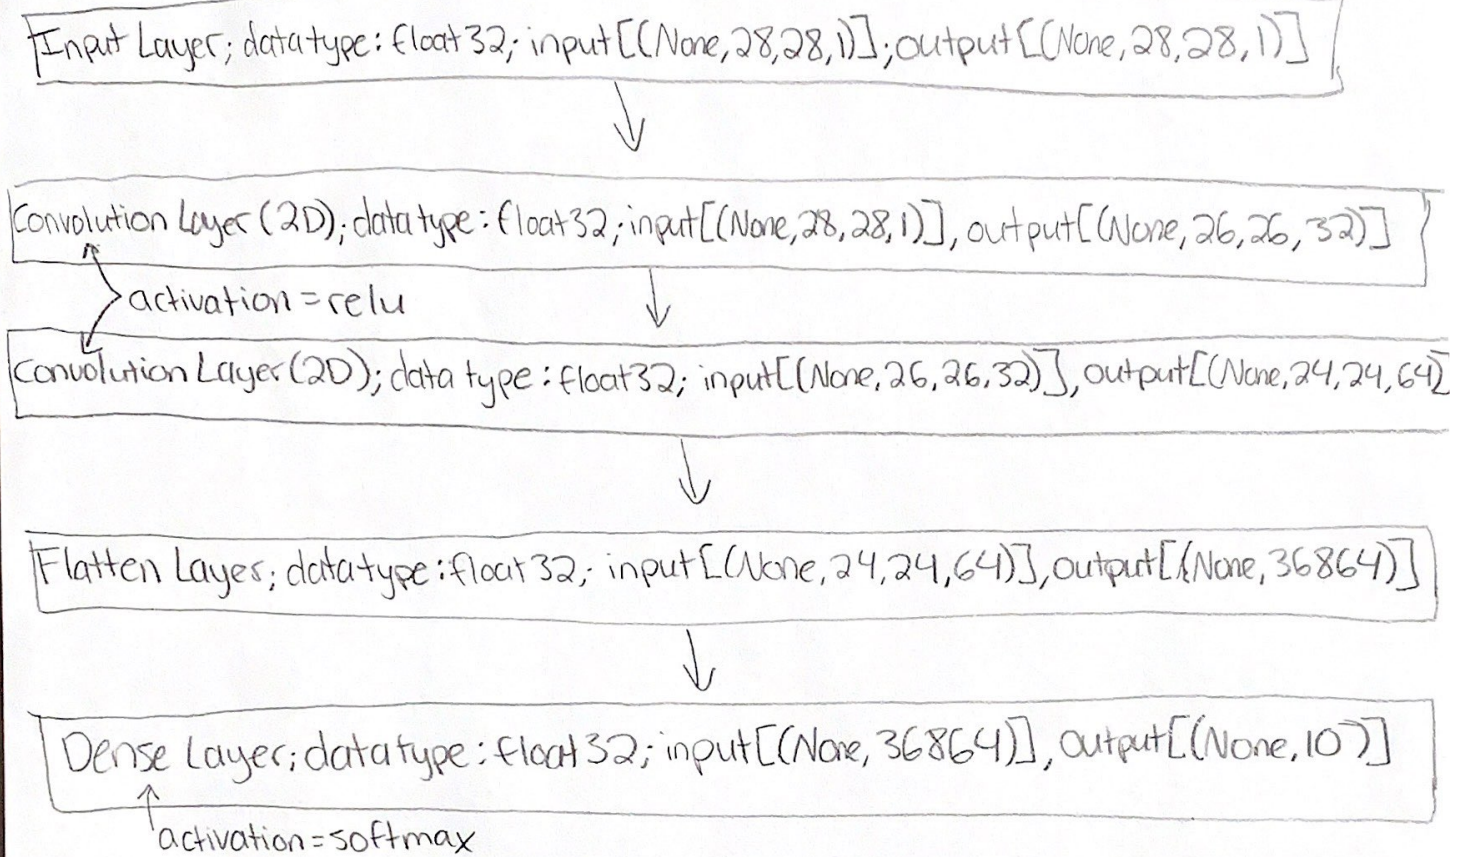 Input Layer; datatype: float32; input[(None,28,28,1)]; output[(None,28,28,1)]
Convolution Layer(2D); datatype: float32; input[(None,28,28,1)], output[(None,26,26,32)]
activation=relu
Convolution Layer(2D); data type: float32; input[(None,26,26,32)], output[(None,24,24,64)]
Flatten Layer; datatype: float32; input[(None,24,24,64)], output[(None,36864)]
Dense Layer; datatype: float32; input[(None,36864)], output[(None,10)]
activation=softmax